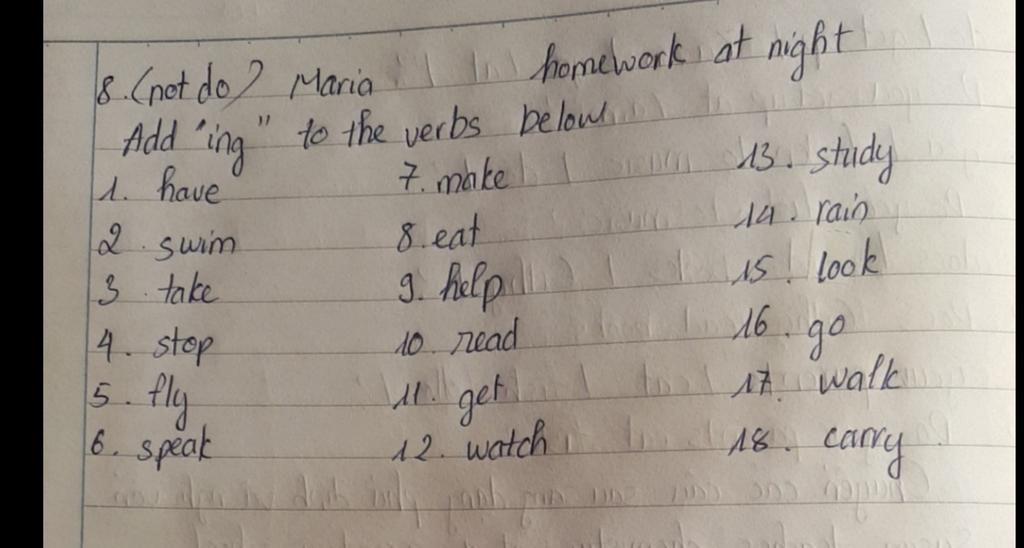 8. (not do) Maria homework at night
Add "ing" to the verbs below
1. have 7. make 13. study
2. swim 8. eat 14. rain
3. take 9. help 15. look
4. stop 10. read 16. go
5. fly 11. get 17. walk
6. speak 12. watch 18. carry